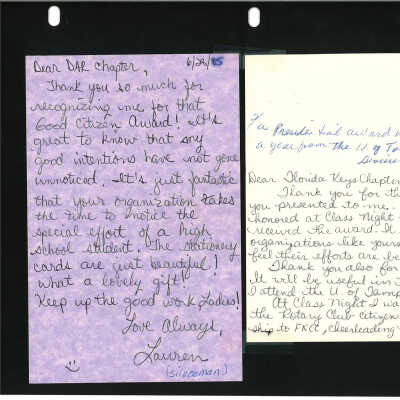 Dear DAR Chapter, 6/28/85
Thank you so much for
recognizing me for that
Good Citizen Award! It's
great to know that my
good intentions have not gone
unnoticed. It's just fantastic
that your organization takes
the time to notice the
special effort of a high
school student. The stationery
cards are just beautiful!
What a lovely gift!
Keep up the good work, Ladies!
Love Always,
Lauren
President ial award
a year from the U. of Ta
Dear Florida Keys Chapter
Thank you for th
you presented to me.
honored at Class Night
received the award. It
organizations like yours
feel their efforts are be
Thank you also for
It will be useful in
I attend the U of Tamp
At Class Night I w
the Rotary Club citizen
ship to FKCC, cheerleading